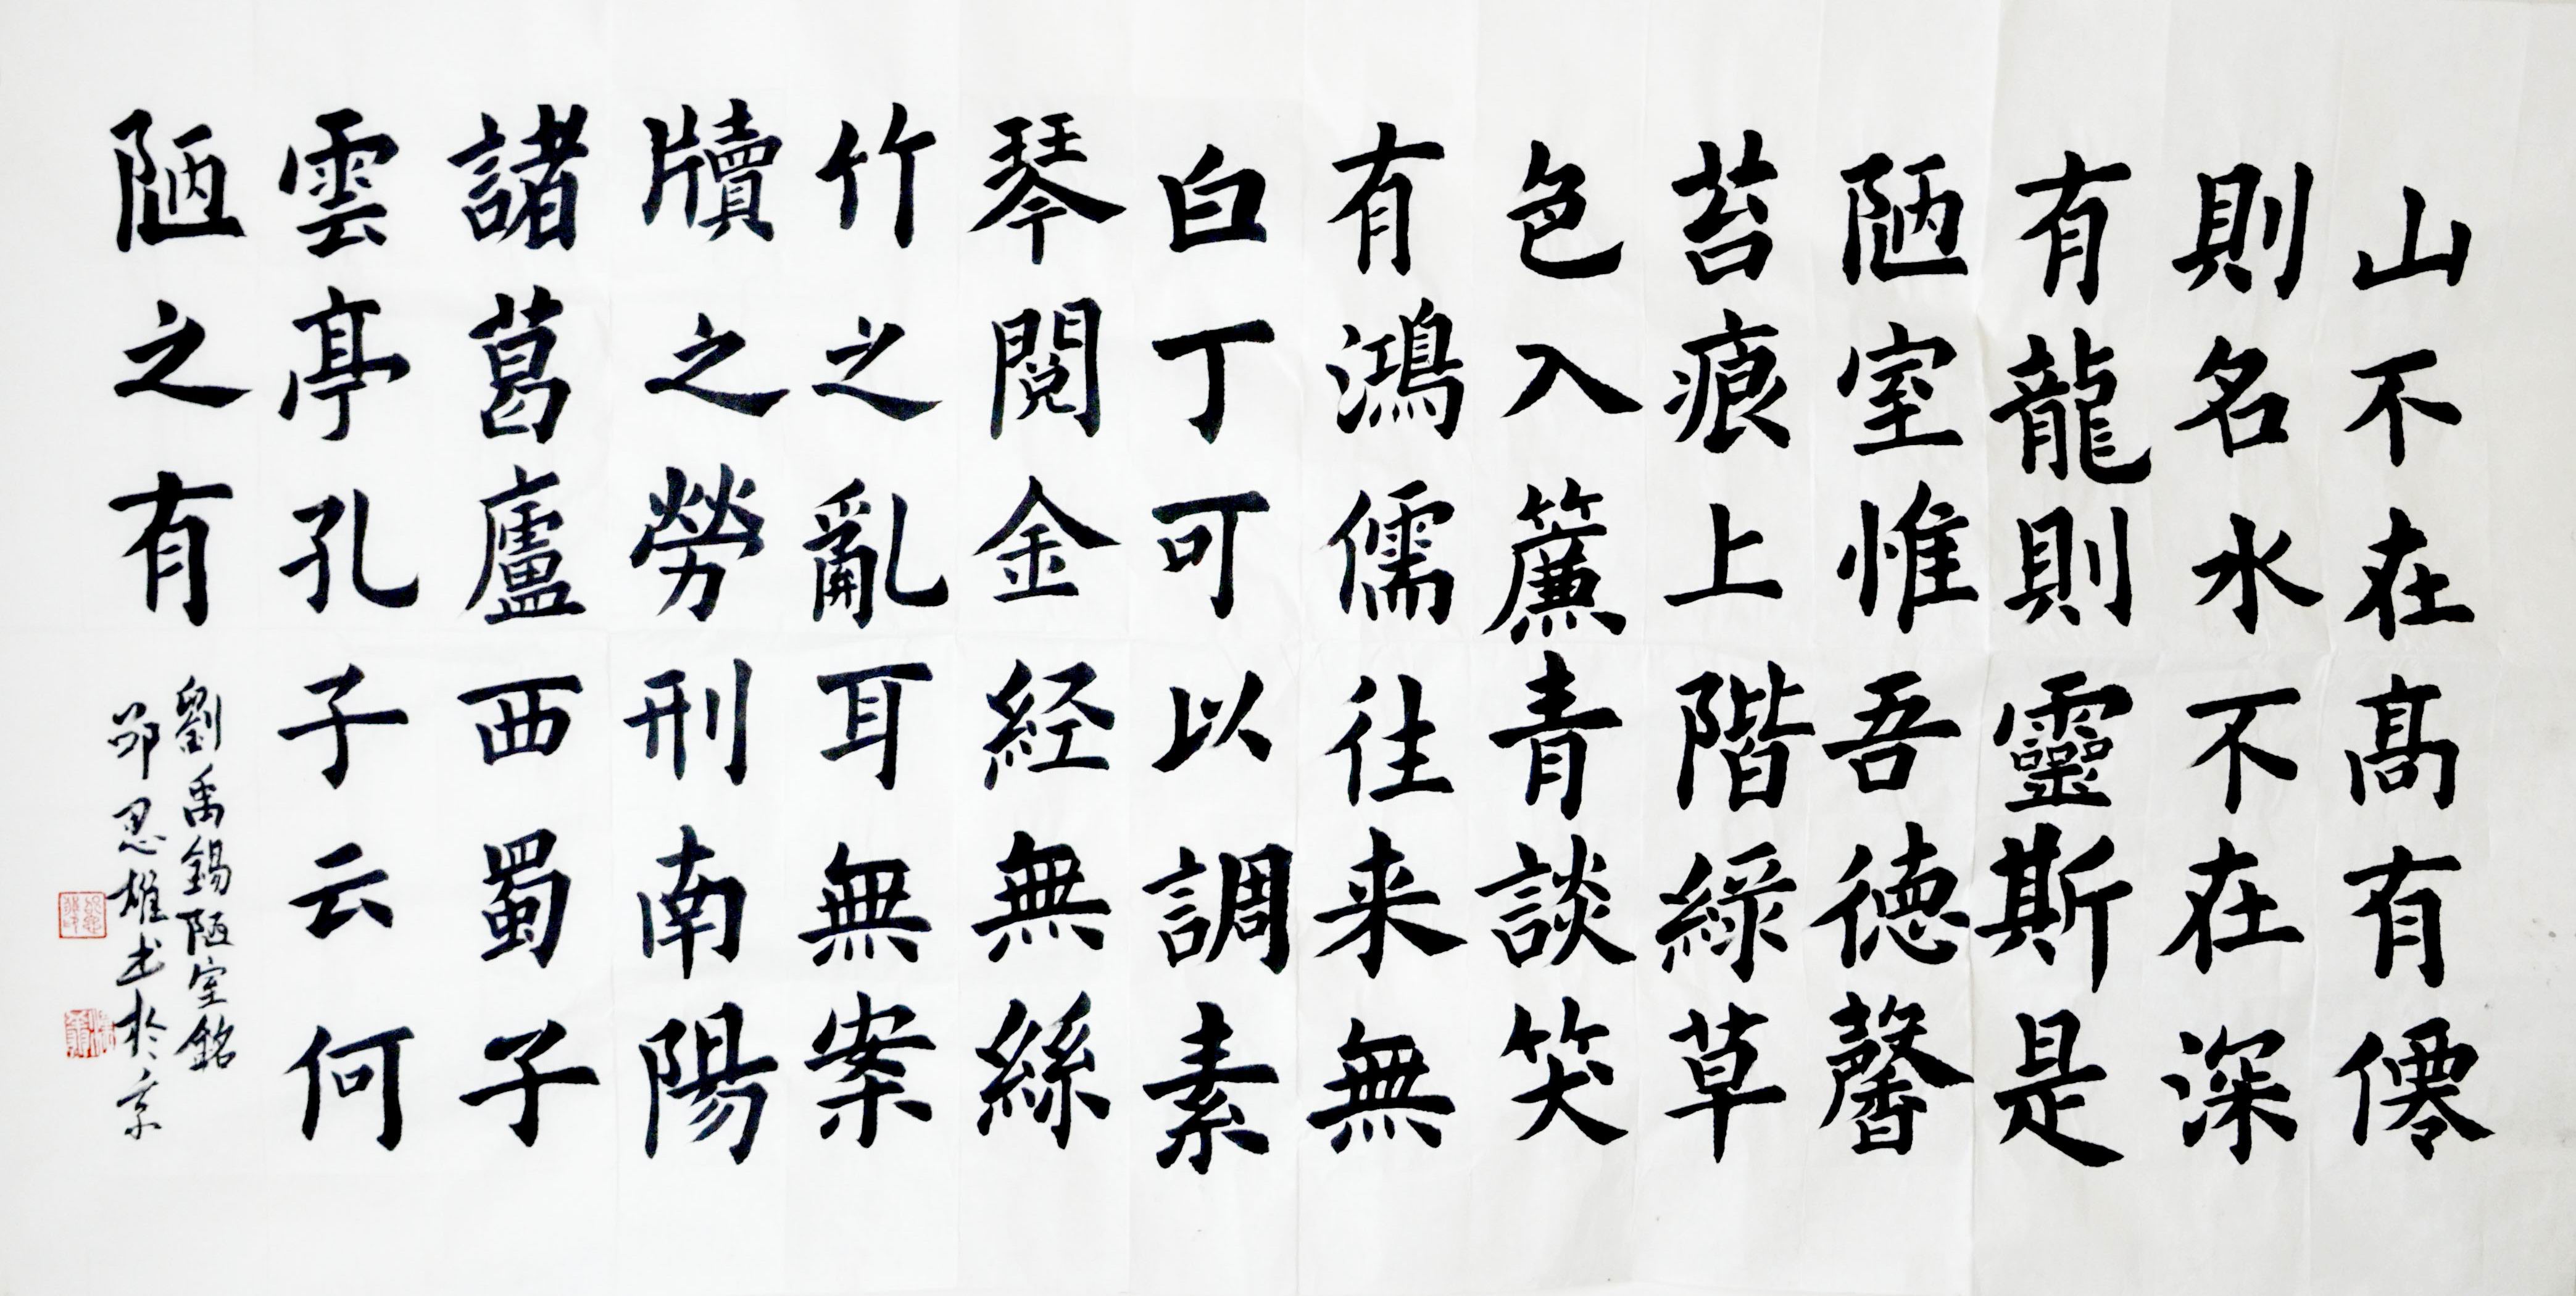 山不在高有僊
則名水不在深
有龍則靈斯是
陋室惟吾德馨
苔痕上階綠草
色入簾青談笑
有鴻儒往来無
白丁可以調素
琴閱金経無絲
竹之亂耳無案
牘之勞刑南陽
諸葛廬西蜀子
雲亭孔子云何
陋之有
劉禹錫陋室銘
邵思雄书於京